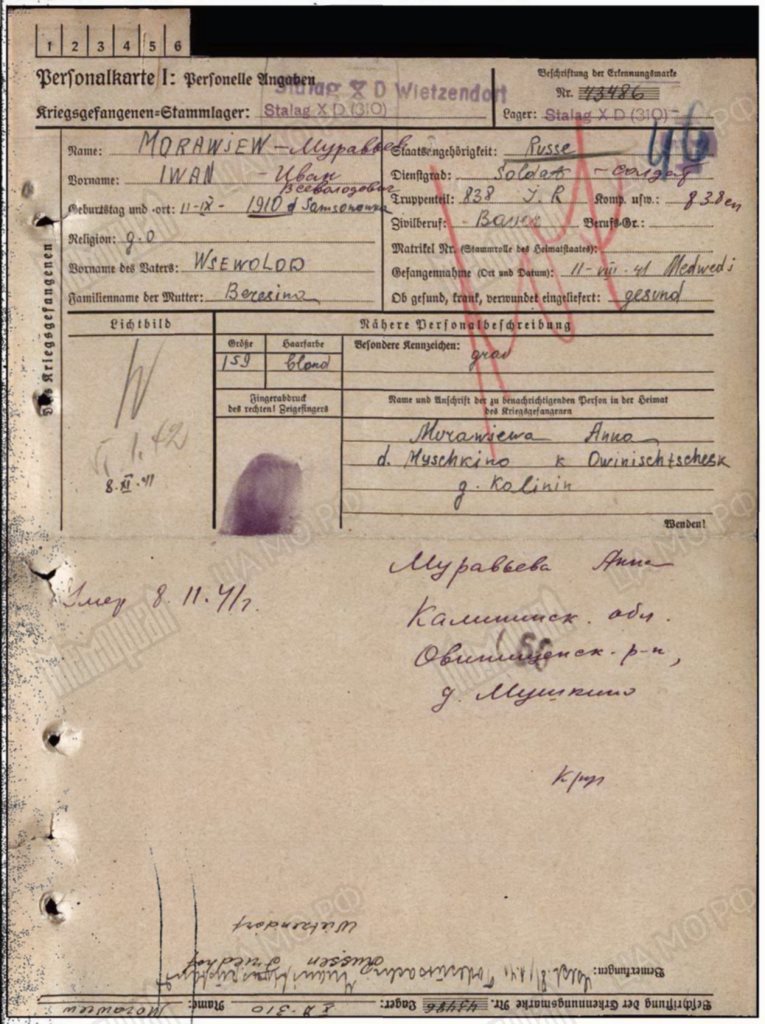 1 2 3 4 5 6
Personalkarte I: Personelle Angaben
Stalag X D Wietzendorf
Beschriftung der Erkennungsmarke
Nr. 43486
Kriegsgefangenen-Stammlager: Stalag X D (310)
Lager: Stalag X D (310)
46
Des Kriegsgefangenen
Name: MORAWJEW - Муравьев
Staatsangehörigkeit: Russe
Vorname: IWAN - Иван Всеволодович
Dienstgrad: Soldat - солдат
Geburtstag und -ort: 11-IX- 1910 d Samsonowka
Truppenteil: 838 J.R Komp. usw.: 838
Religion: g.o
Zivilberuf: Bauer Berufs-Gr.:
Matrikel Nr. (Stammrolle des Heimatstaates):
Vorname des Vaters: WSEWOLOD
Gefangennahme (Ort und Datum): 11-VIII-41 Medwedj
Familienname der Mutter: Beresina
Ob gesund, krank, verwundet eingeliefert: gesund
Lichtbild
Nähere Personalbeschreibung
Größe Haarfarbe Besondere Kennzeichen:
159 blond
Fingerabdruck
des rechten! Zeigefingers
Name und Anschrift der zu benachrichtigenden Person in der Heimat
des Kriegsgefangenen
Morawjewa Anna
d. Myschkino k Owinischtschesk
g. Kalinin
8.XI.41
Wenden!
Муравьева Анна
Умер 8.11.41г.
Калининск. обл.
Овинищенск. р-н,
д. Мушкино
Bemerkungen:
Russen Friedhof
Wietzendorf
Beschriftung der Erkennungsmarke Nr. 43486 Lager: X D-310 Name: Morawjew
Мемориал
ЦАМО РФ